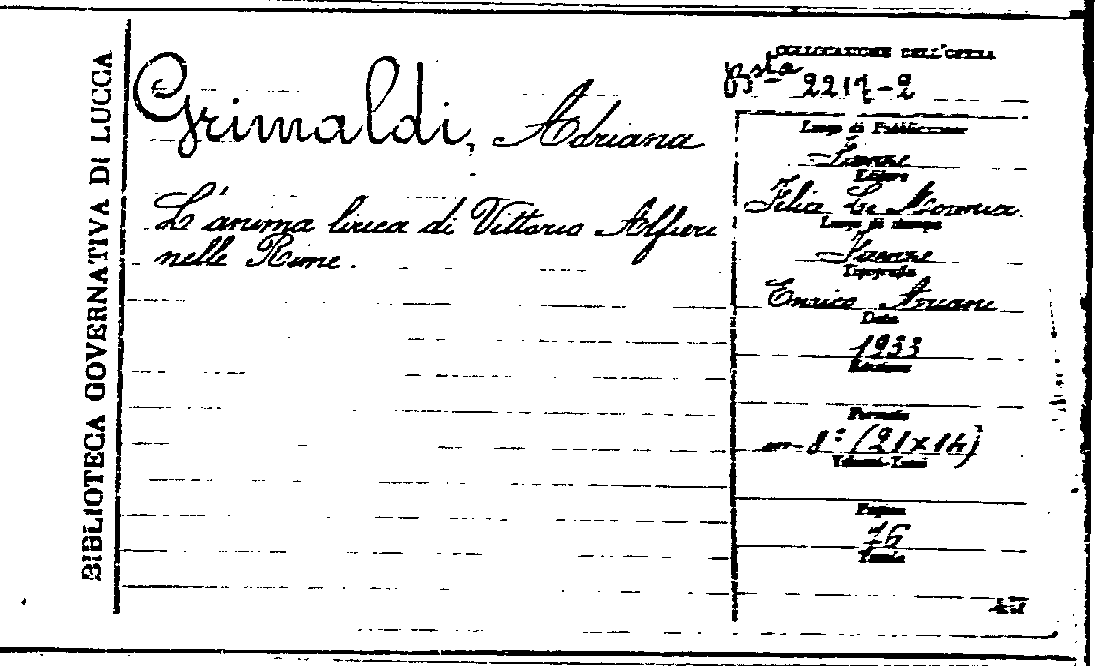 BIBLIOTECA GOVERNATIVA DI LUCCA
Grimaldi, Adriana
L'anima lirica di Vittorio Alfieri
nelle Rime.
COLLOCAZIONE DELL'OPERA
Bsta 2217-2
Luogo di Pubblicazione
Firenze
Editore
Felice Le Monnier
Luogo di stampa
Firenze
Tipografia
Enrico Ariani
Data
1933
Edizione
Formato
in-8° (21x14)
Volumi-Tomi
Pagine
76
Tavole